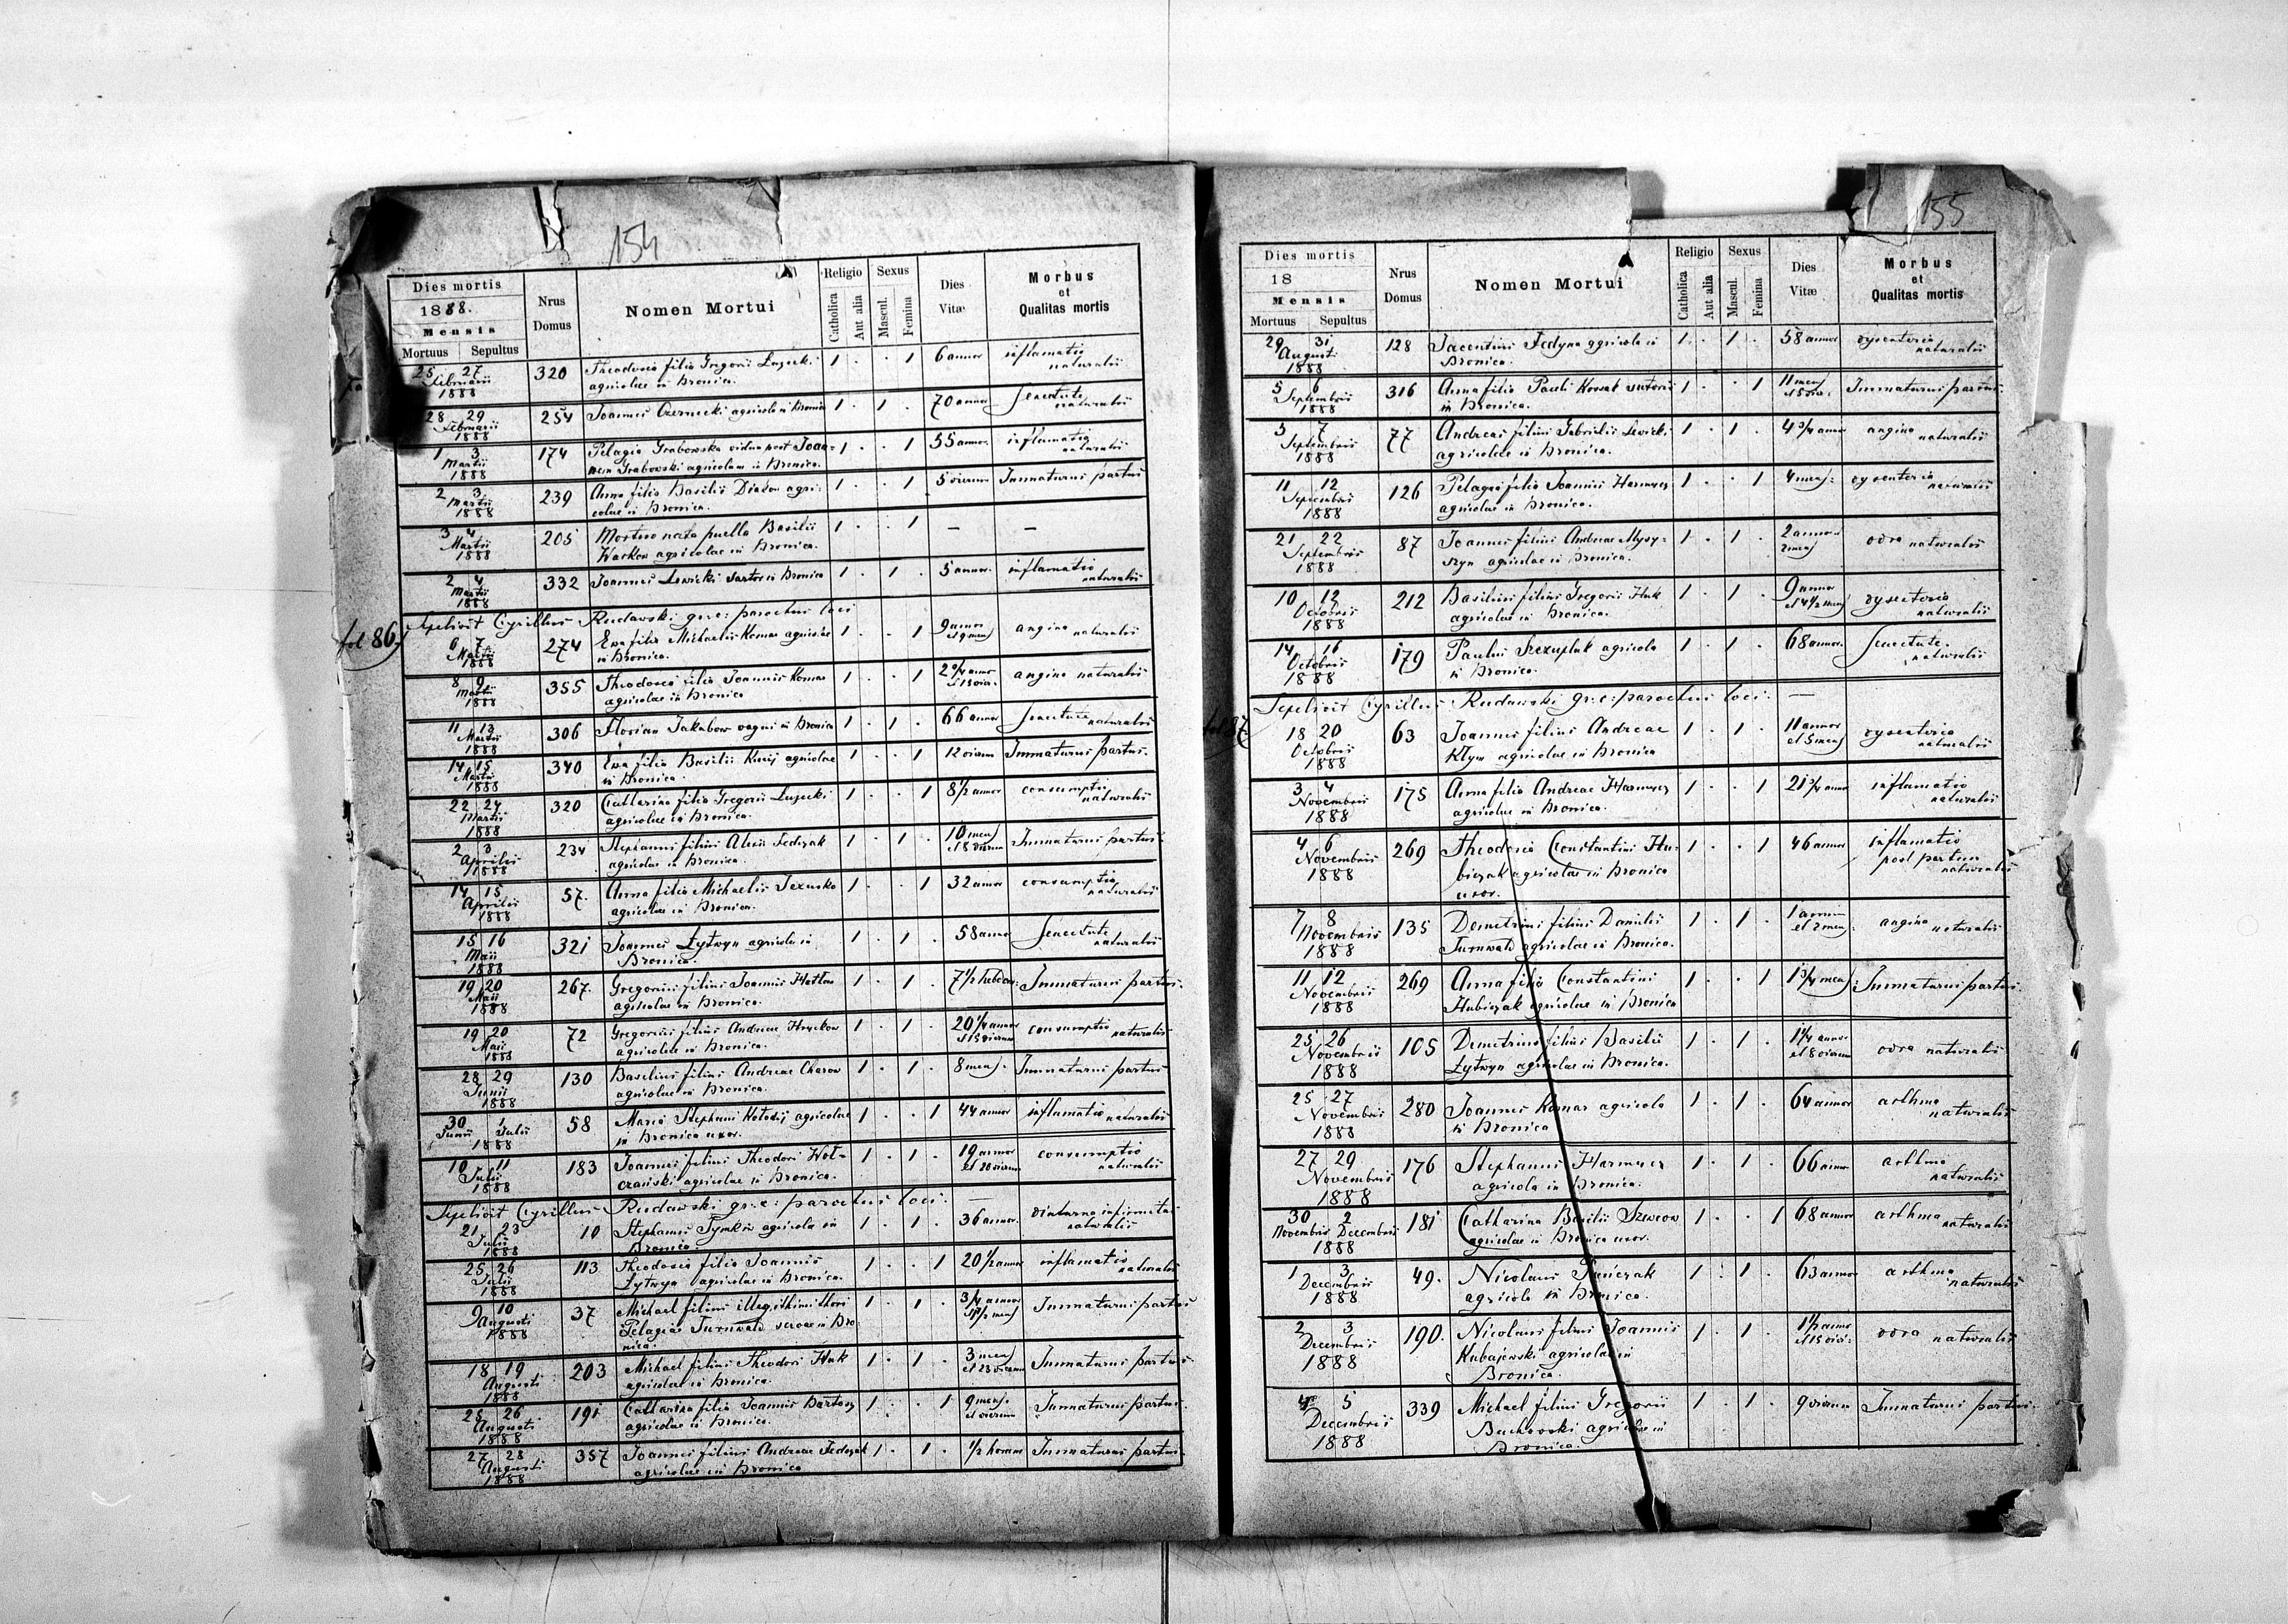 154
Dies mortis
1888.
Mensis
Mortuus Sepultus
Nrus Domus
Nomen Mortui
Religio
Catholica
Aut alia
Sexus
Mascul.
Femina
Dies Vitæ
Morbus
et
Qualitas mortis
25 27 320 Theodosia filia Gregorii 1 . . 1 6 annor inflamatio
Februarii agricolae in Bronica. naturalis
1888
28 29 254 Joannes Czernecki agricola in Bronica 1 . 1 . 70 annor Senectute
Februarii naturalis
1888
1 3 174 Pelagia Grabowska vidua post Joan- 1 . . 1 55 annor. inflamatio
Martii nem Grabowski agricolam in Bronica. naturalis
1888
2 3 239 Anna filia Basilii Diakow agri- 1 . . 1 5 dierum Immaturus partus
Martii colae in Bronica.
1888
3 4 205 Mortuo nata puella Basilii 1 . . 1 — —
Martii agricolae in Bronica.
1888
2 4 332 Joannes Lewicki sartor in Bronica 1 . 1 . 5 annor. inflamatio
Martii naturalis
1888
Sepelivit Cyrillus Rudawski gr: c: parochus loci
fol 86
6 7 274 Ewa filia Michaelis Komar agricolae 1 . . 1 9 annor angina naturalis
Martii in Bronica. et 9 mens
1888
8 9 355 Theodosia filia Joannis Komar 1 . . 1 angina naturalis
Martii agricolae in Bronica
1888
11 13 306 Florian Jakubow vagus in Bronica 1 . 1 . 66 annor Senectute naturalis
Martii
1888
14 15 340 Ewa filia Basilii agricolae 1 . . 1 12 dierum Immaturus partus.
Martii in Bronica.
1888
22 24 320 Catharina filia Gregorii 1 . . 1 8 1/2 annor consumptio
Martii agricolae in Bronica. naturalis
1888
2 3 234 Stephanus filius Alexii Fedczak 1 . 1 . 10 mens Immaturus partus.
Aprilis agricolae in Bronica. et 8 dierum
1888
14 15 57. Anna filia Michaelis 1 . . 1 32 annor consumptio
Aprilis agricolae in Bronica. naturalis
1888
15 16 321 Joannes Łytwyn agricola in 1 . 1 . 58 annor Senectute
Maii Bronica. naturalis
1888
19 20 267. Gregorius filius Joannis 1 . 1 . Immaturus partus.
Maii agricolae in Bronica.
1888
19 20 72 Gregorius filius Andreae Hryckow 1 . 1 . 20 1/4 annor consumptio
Maii agricolae in Bronica. et 15 dierum naturalis
1888
28 29 130 Basilius filius Andreae Charow 1 . 1 . 8 mens. Immaturus partus
Junii agricolae in Bronica.
1888
30 1 58 Maria Stephani Kołodij agricolae 1 . . 1 44 annor inflamatio naturalis
Junii Julii in Bronica uxor.
1888
10 11 183 Joannes filius Theodori Woł- 1 . 1 . 19 annor consumptio
Julii czański agricolae in Bronica. et 20 dierum naturalis
1888
Sepelivit Cyrillus Rudawski gr: c: parochus loci. —
21 23 10 Stephanus Tymkiw agricola in 1 . 1 . 36 annor. diuturna infirmitas
Julii Bronica. naturalis
1888
25 26 113 Theodosia filia Joannis 1 . . 1 20 1/2 annor inflamatio
Julii Łytwyn agricolae in Bronica. naturalis
1888
9 10 37. Michael filius illegithimi thori 1 . 1 . 3/4 annor Immaturus partus
Augusti Pelagiae Turnwald servae in Bro-
1888 nica.
18 19 203 Michael filius Theodori Huk 1 . 1 . 3 mens Immaturus partus.
Augusti agricolae in Bronica. et 23 dierum
1888
25 26 191 Catharina filia Joannis Bartosz 1 . . 1 9 mens. Immaturus partus.
Augusti agricolae in Bronica. et dierum
1888
27 28 357 Joannes filius Andreae Fedczak 1 . 1 . 1/2 horam Immaturus partus.
Augusti agricolae in Bronica
1888
155
Dies mortis
18
Mensis
Mortuus Sepultus
Nrus Domus
Nomen Mortui
Religio
Catholica
Aut alia
Sexus
Mascul.
Femina
Dies Vitæ
Morbus
et
Qualitas mortis
29 31 128 Jacentius Fedyna agricola in 1 . 1 . 58 annor dysenteria
August. Bronica. naturalis
1888
5 6 316 Anna filia Pauli Kossak sutoris 1 . . 1 11 mens Immaturus partus
Septembris in Bronica.
1888
5 7 77 Andreas filius Gabrielis Lewicki 1 . 1 . 4 3/4 annor angina naturalis
Septembris agricolae in Bronica.
1888
11 12 126 Pelagia filia Joannis Harmyer 1 . . 1 4 mens: dysenteria
Septembris agricolae in Bronica. naturalis
1888
21 22 87 Joannes filius Andreae Mysy- 1 . 1 . 2 annor odra naturalis
Septembris szyn agricolae in Bronica. 2 mens
1888
10 12 212 Basilius filius Gregorii Huk 1 . 1 . 9 annor dysenteria
Octobris agricolae in Bronica. et 4 1/2 mens naturalis
1888
14 16 179 Paulus Szczuplak agricola 1 . 1 . 68 annor. Senectute.
Octobris in Bronica. naturalis
1888
Sepelivit Cyrillus Rudawski gr: c: parochus loci. —
fol 87.
18 20 63 Joannes filius Andreae 1 . 1 . 11 annor dysenteria
Octobris Kłym agricolae in Bronica et 5 mens naturalis
1888
3 4 175 Anna filia Andreae Harmyer 1 . . 1 21 3/4 annor inflamatio
Novembris agricolae in Bronica. naturalis
1888
4 6 269 Theodosia Constantini Hu- 1 . . 1 46 annor inflamatio
Novembris biczak agricolae in Bronica post partum
1888 uxor. naturalis
7 8 135 Demetrius filius Danielis 1 . 1 . 1 annum angina naturalis
Novembris Turnwald agricolae in Bronica. et 2 mens.
1888
11 12 269 Anna filia Constantini 1 . . 1 1 3/4 mens: Immaturus partus.
Novembris Hubiczak agricolae in Bronica
1888
25 26 105 Demetrius filius Basilii 1 . 1 . 1 1/4 annor odra naturalis
Novembris Łytwyn agricolae in Bronica. et 8 dierum
1888
25 27 280 Joannes Komar agricola 1 . 1 . 64 annor asthma
Novembris in Bronica naturalis
1888
27 29 176 Stephanus Harmyer 1 . 1 . 66 annor asthma
Novembris agricola in Bronica. naturalis
1888
30 2 181 Catharina Basilii Szewcow 1 . . 1 68 annor asthma
Novembris Decembris agricolae in Bronica uxor. naturalis
1888
1 3 49. Nicolaus agricola in Bronica. 1 . 1 . 63 annor asthma
Decembris naturalis
1888
2 3 190. Nicolaus filius Joannis 1 . 1 . 1 1/2 annor odra naturalis
Decembris Kubajewski agricolae in
1888 Bronica.
4 5 339 Michael filius Gregorii 1 . 1 . 9 dierum Immaturus partus.
Decembris Buchowski agricolae in
1888 Bronica.